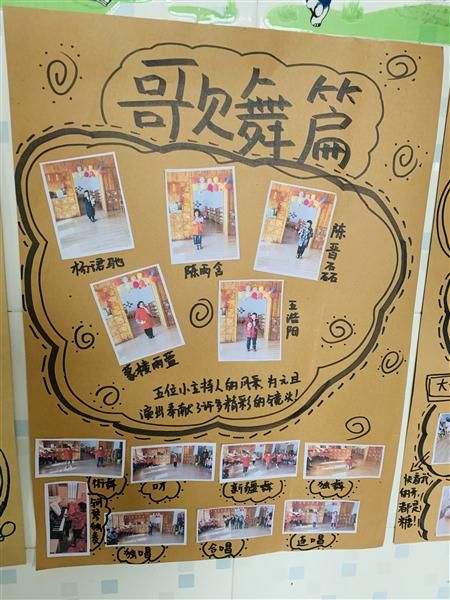 歌舞篇
杨珺驰
陈雨含
陈晋磊
王浩阳
雨萱
五位小主持人的风采为元旦
演出奉献了许多精彩的镜头!
街舞
口才
新疆舞
独舞
钢琴独奏
独唱
合唱
连唱
大
都是
糖!